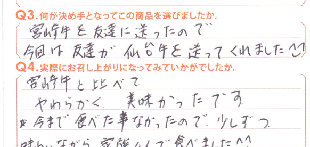 Q3.何が決め手となってこの商品を選びましたか。
宮崎牛を友達に送ったので
今回は友達が仙台牛を送ってくれました^^
Q4.実際にお召し上がりになってみていかがでしたか。
宮崎牛と比べて
やわらかく 美味かったです
今まで食べた事なかったので、少しずつ
味わいながら 家族みんなで食べました^^